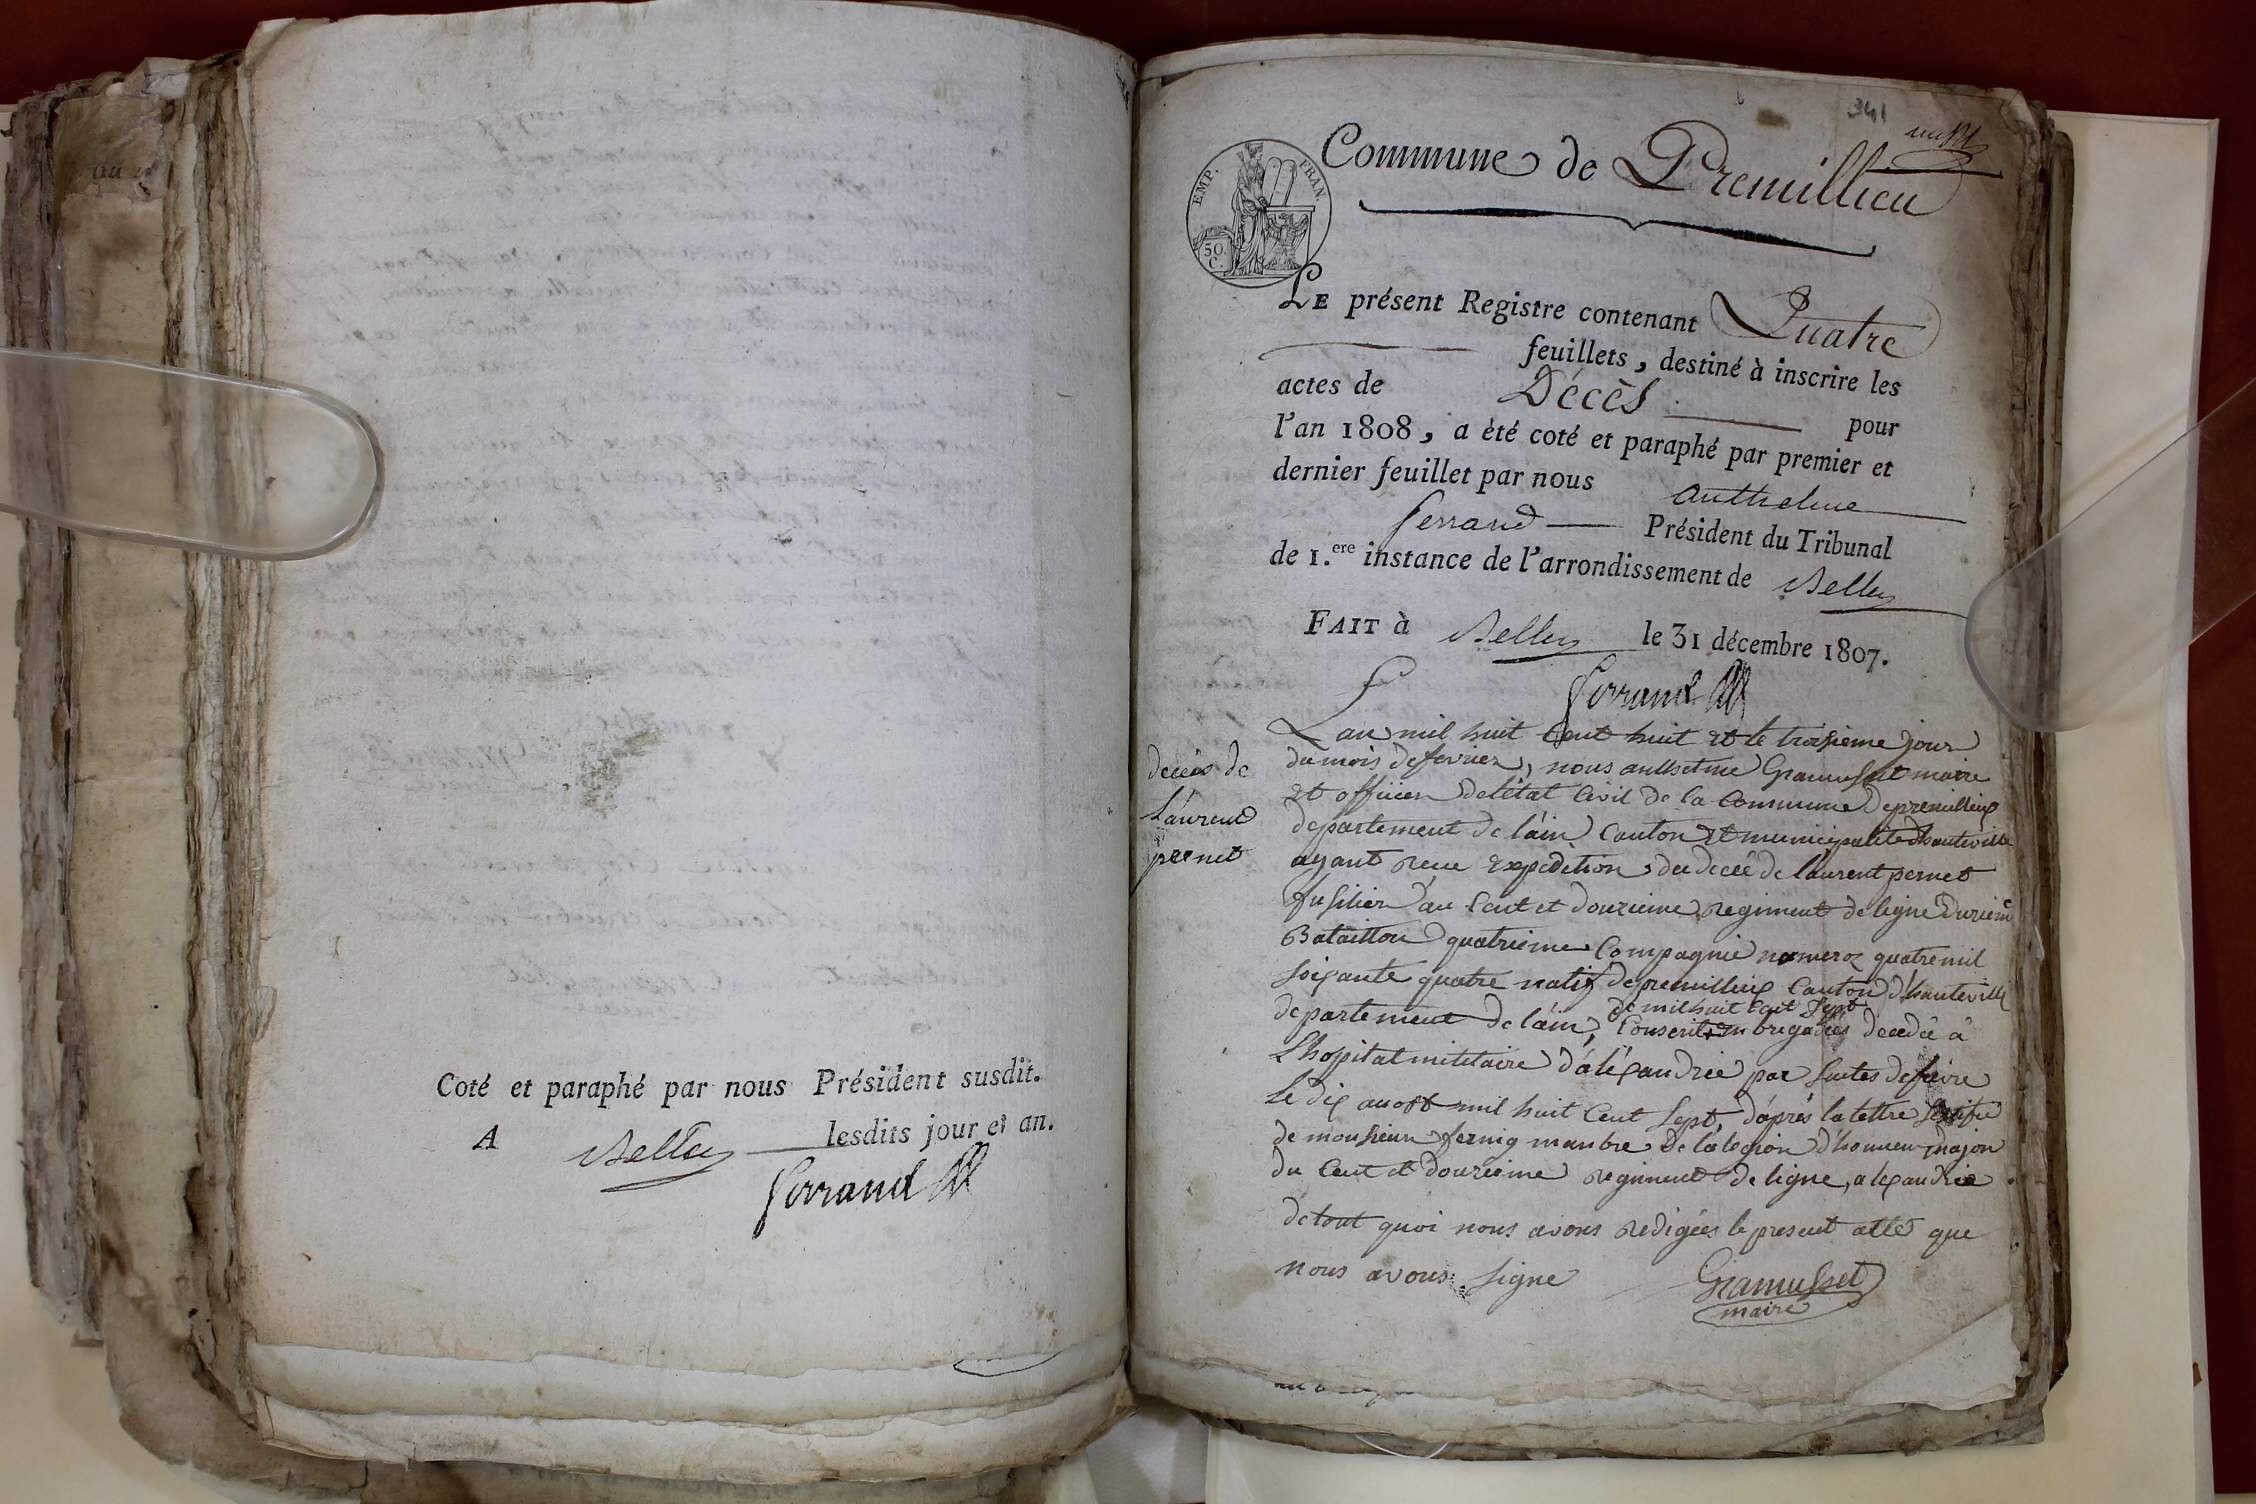 Coté et paraphé par nous Président susdit.
A Belley lesdits jour et an.
Ferrand
341
Commune de Prémillieu
EMP. FRAN.
50 C.
LE présent Registre contenant Quatre
feuillets, destiné à inscrire les
actes de Décès pour
l'an 1808, a èté coté et paraphé par premier et
dernier feuillet par nous anthelme
ferrand Président du Tribunal
de 1.ere instance de l'arrondissement de Belley
FAIT à Belley le 31 décembre 1807.
Ferrand
décés de
Laurent
pernet
L'an mil huit Cent huit et le troisieme jour
du mois de fevrier, nous anthelme Gramusset maire
et officier de l'état Civil de la Commune de premillieu
departement de l'ain Canton et municipalité d'hauteville
ayant reçue expedition du decée de laurent pernet
fusilier au Cent et douzieme regiment de ligne
Bataillon quatrieme Compagnie numeroz quatre mil
soixante quatre natif de premillieu Canton d'hauteville
de mil huit Cent Sept
departement de l'ain, Conscrit decedé à
L'hopital militaire d'aléxandrie par suites de fievre
le dix auost mil huit Cent Sept, d'aprés la lettre
de monsieur fernig manbre de la legion d'honneur major
du Cent et douzieme regiment de ligne, alexandrie
de tout quoi nous avons redigées le present acte que
nous avons signe Gramusset
maire